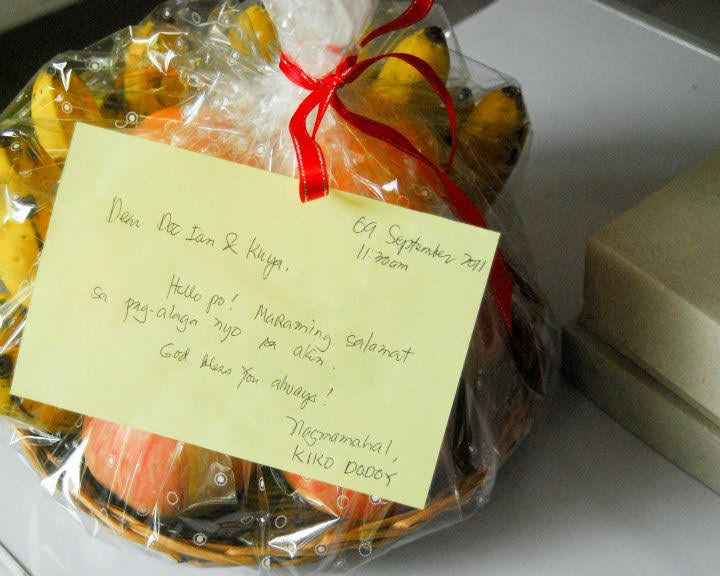 09 September 2011
11:20am
Dear Doc Ian & Kuya,
Hello po! Maraming salamat
sa pag-alaga nyo sa akin.
God bless you always!
Nagmamahal,
KIKO DODOY